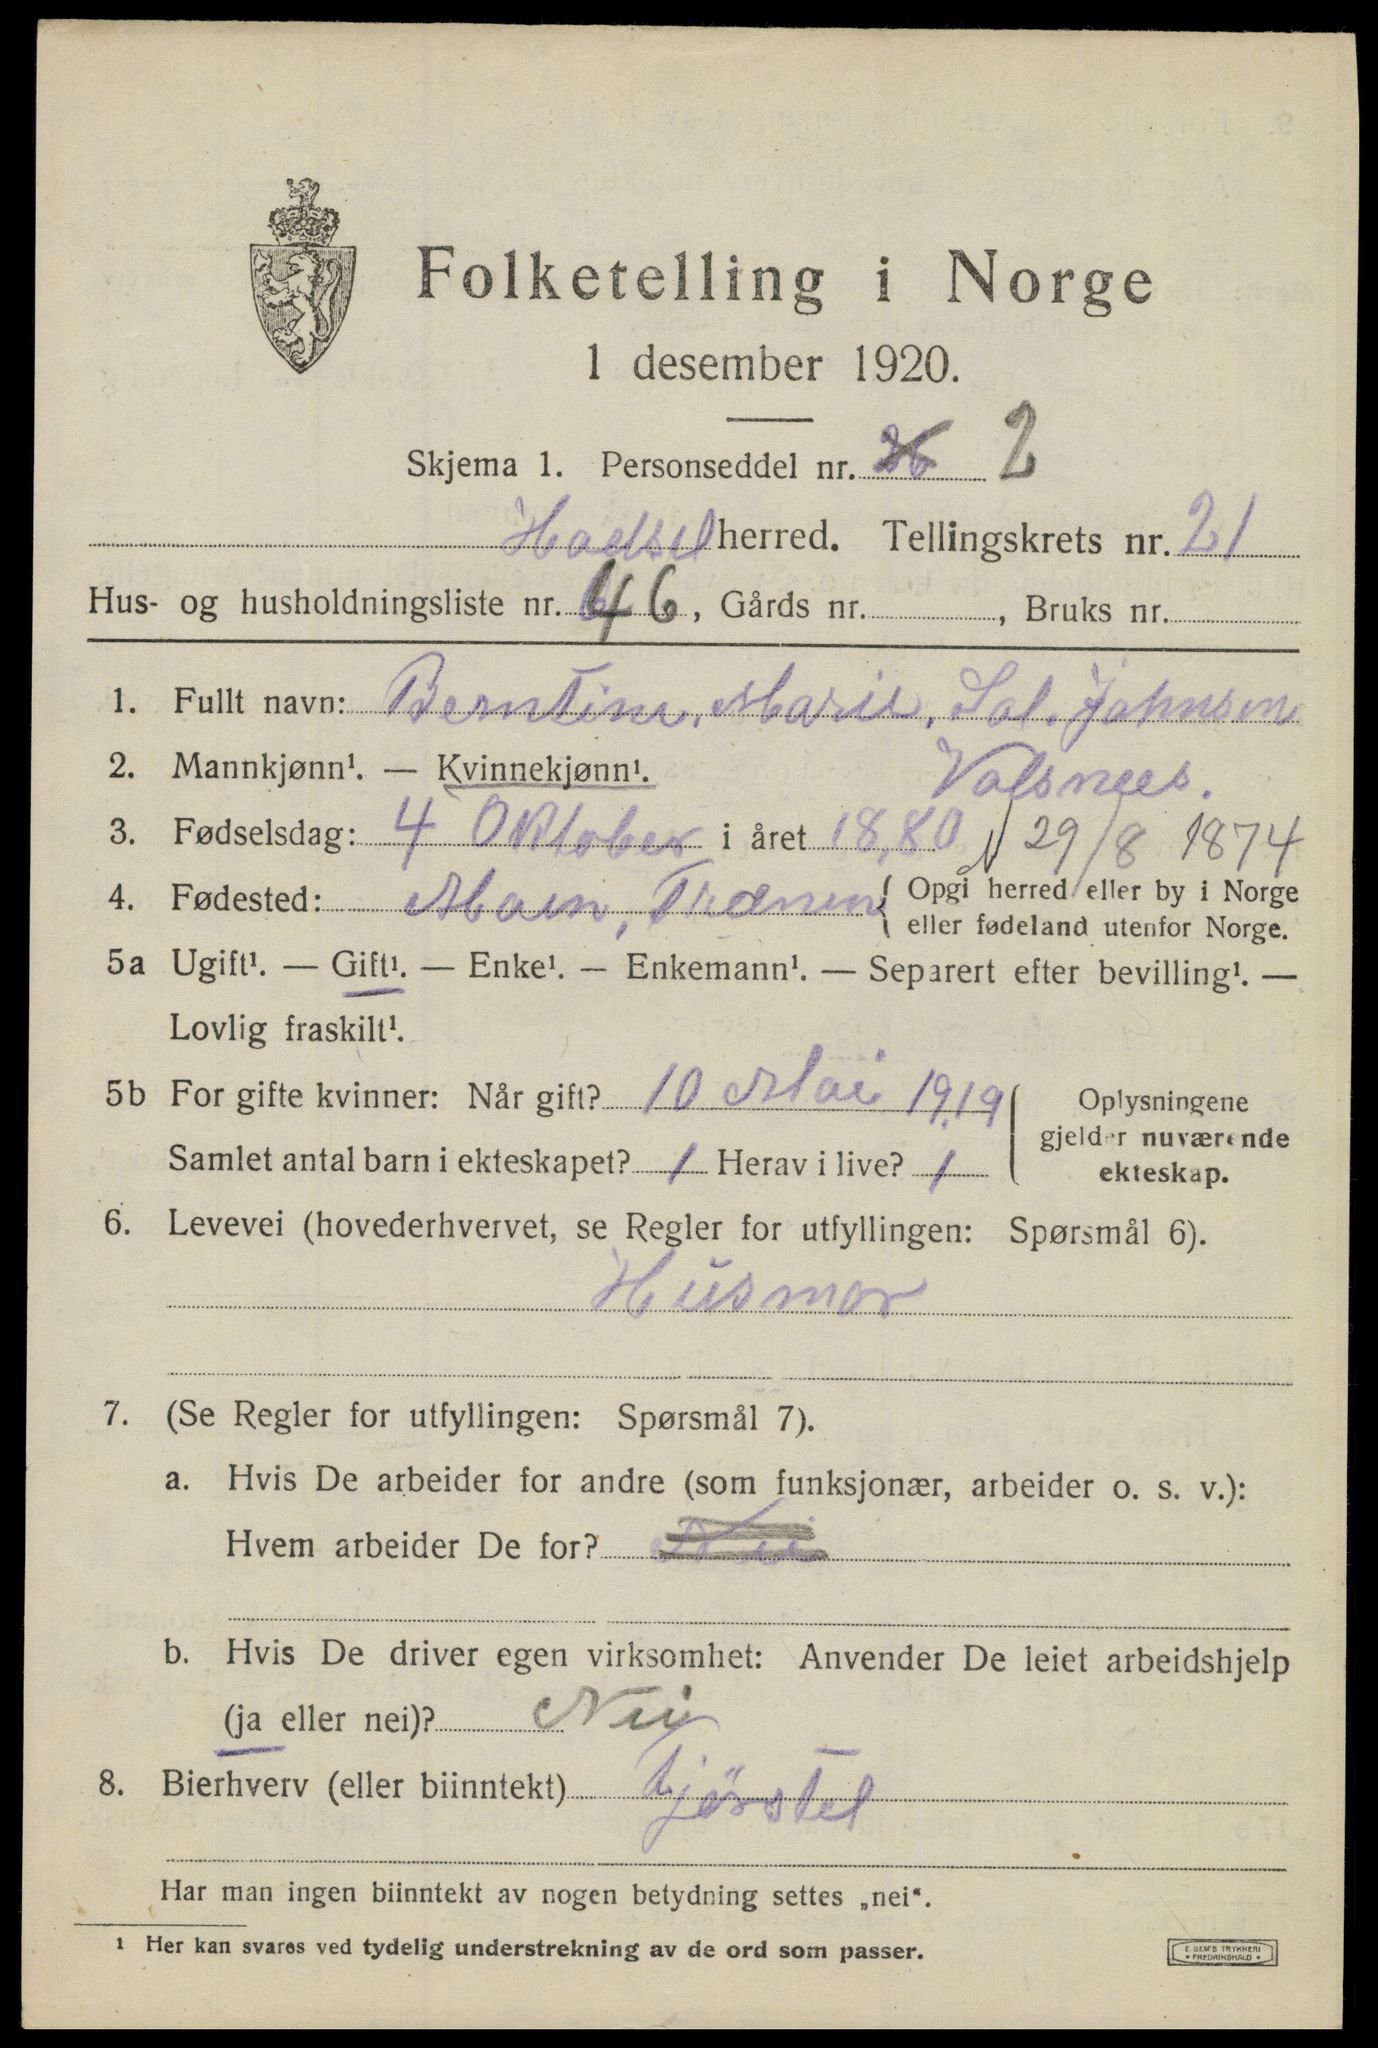 Folketelling i Norge
1 desember 1920.
Skjema 1. Personseddel nr. 2
Hadsel herred. Tellingskrets nr. 21
Hus- og husholdningsliste nr. 46, Gårds nr. , Bruks nr.
1. Fullt navn: Berntine, Marie, Sal. Johnson
2. Mannkjønn¹. — Kvinnekjønn¹. Valsnees.
3. Fødselsdag: 4 Oktober i året 18,80 29/8 1874
4. Fødested: Trænen { Opgi herred eller by i Norge
eller fødeland utenfor Norge.
5a Ugift¹. — Gift¹. — Enke¹. — Enkemann¹. — Separert efter bevilling¹. —
Lovlig fraskilt¹.
5b For gifte kvinner: Når gift? 10 Mai 1919 Oplysningene
gjelder nuværende
Samlet antal barn i ekteskapet? 1 Herav i live? 1 ekteskap.
6. Levevei (hovederhvervet, se Regler for utfyllingen: Spørsmål 6).
Husmor
7. (Se Regler for utfyllingen: Spørsmål 7).
a. Hvis De arbeider for andre (som funksjonær, arbeider o. s. v.):
Hvem arbeider De for? Nei
b. Hvis De driver egen virksomhet: Anvender De leiet arbeidshjelp
(ja eller nei)? Nei
8. Bierhverv (eller biinntekt)
Har man ingen biinntekt av nogen betydning settes „nei“.
¹ Her kan svares ved tydelig understrekning av de ord som passer.
E. SEM'S TRYKKERI
• FREDRIKSHALD •